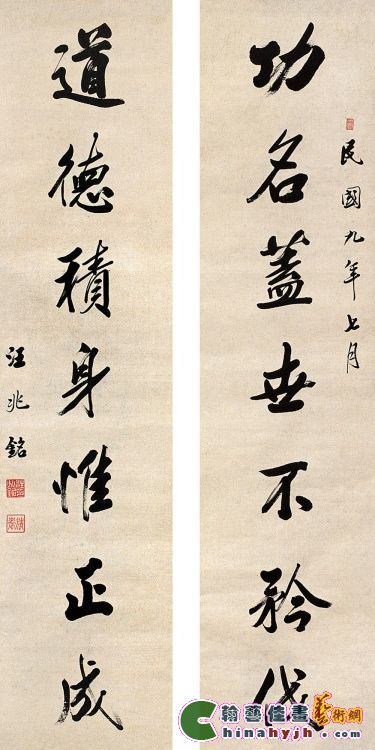 民國九年七月
功名蓋世不矜伐
道德積身惟正成
汪兆銘
翰藝佳畫藝術網
hinahyjh.com